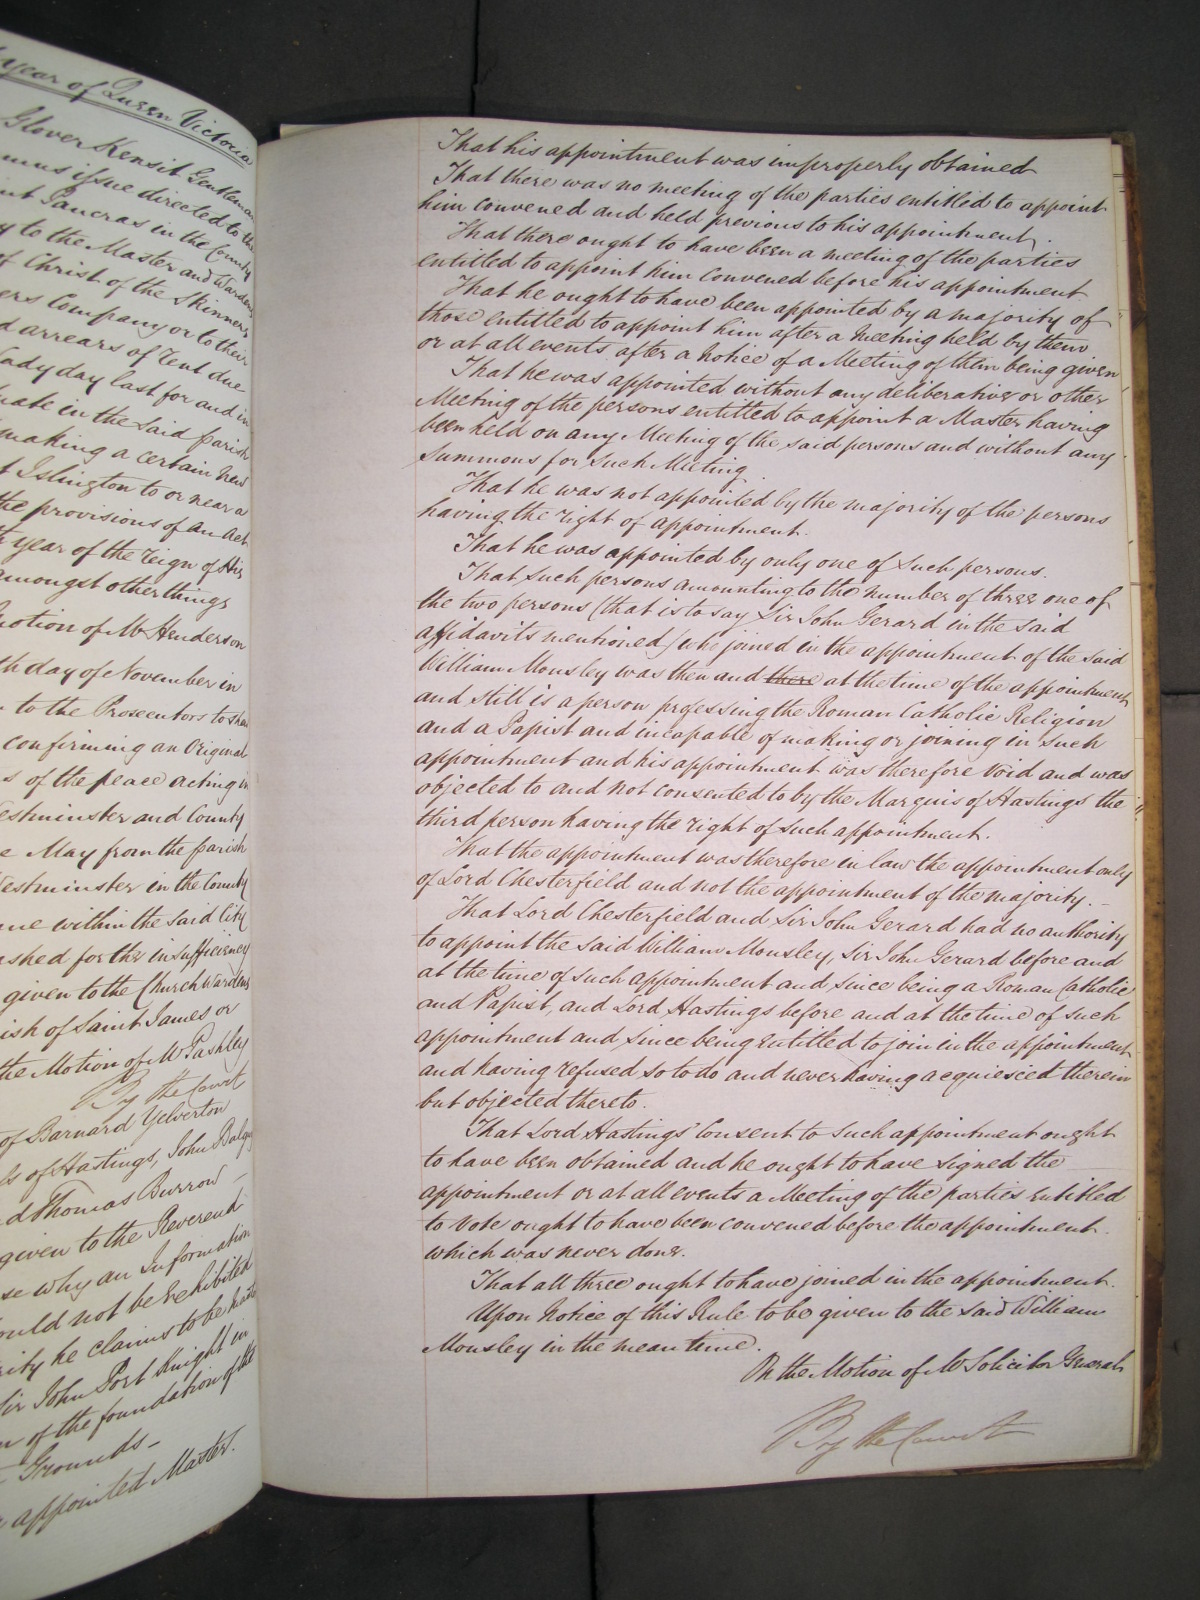 year of Queen Victoria
Glover Kensit Gentleman
issue directed to the
Pancras in the County
to the Master and Wardens
of Christ of the Skinners
Company or to their
arrears of Rent due
Lady day last for and in
in the said parish
making a certain New
Islington to or near a
the provisions of an Act
year of the reign of His
amongst other things
Motion of Mr Henderson
day of November in
to the Prosecutors to shew
confirming an Original
of the peace acting in
Westminster and County
May from the parish
Westminster in the County
within the said City
for the insufficiency
given to the Churchwardens
of Saint James or
the Motion of Mr Pashley
By the Court
of Barnard Yelverton
of Hastings, John Balguy
Thomas Burrow
given to the Reverend
why an Information
should not be Exhibited
he claims to be
Sir John Port Knight in
of the foundation of the
Grounds
appointed Master.
That his appointment was improperly obtained
That there was no meeting of the parties entitled to appoint
him convened and held previous to his appointment.
That there ought to have been a meeting of the parties
entitled to appoint him convened before his appointment
That he ought to have been appointed by a majority of
those entitled to appoint him after a Meeting held by them
or at all events after a Notice of a Meeting of them being given
That he was appointed without any deliberative or other
Meeting of the persons entitled to appoint a Master having
been held on any Meeting of the said persons and without any
Summons for such Meeting.
That he was not appointed by the majority of the persons
having the right of appointment.
That he was appointed by only one of such persons.
That such persons amounting to the number of three one of
the two persons (that is to say Sir John Gerard in the said
affidavits mentioned) who joined in the appointment of the said
William Mousley was then and there at the time of the appointment
and still is a person professing the Roman Catholic Religion
and a Papist and incapable of making or joining in such
appointment and his appointment was therefore void and was
objected to and not consented to by the Marquis of Hastings the
third person having the right of such appointment.
That the appointment was therefore in law the appointment only
of Lord Chesterfield and not the appointment of the majority. -
That Lord Chesterfield and Sir John Gerard had no authority
to appoint the said William Mousley, Sir John Gerard before and
at the time of such appointment and since being a Roman Catholic
and Papist, and Lord Hastings before and at the time of such
appointment and since being entitled to join in the appointment
and having refused so to do and never having acquiesced therein
but objected thereto.
That Lord Hastings' Consent to such appointment ought
to have been obtained and he ought to have signed the
appointment or at all events a Meeting of the parties entitled
to vote ought to have been convened before the appointment.
which was never done.
That all three ought to have joined in the appointment.
Upon Notice of this Rule to be given to the said William
Mousley in the mean time.
On the Motion of Mr Solicitor General
By the Court